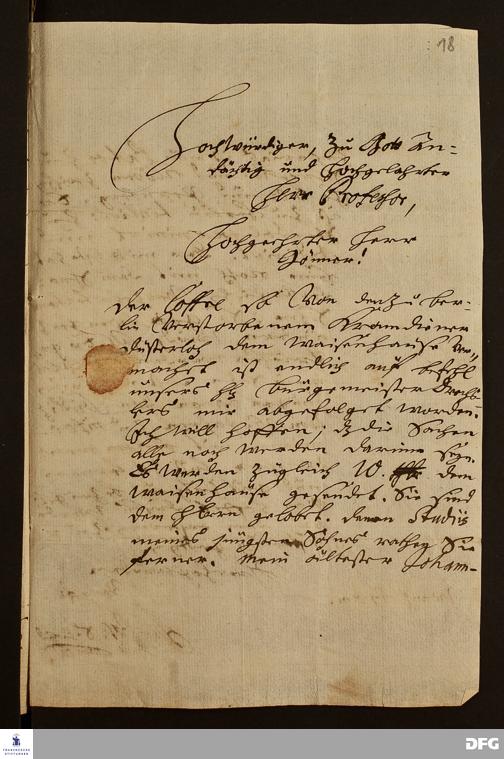 18
Hochwürdiger, Zu Gott An-
dächtig und Hochgelahrter
Herr Professor,
Hochgeehrter Herr
Gönner!
Der Coffel so Von dem zu Ber-
lin Verstorbenem Kramdiener
Düsterloh dem Waisenhause ver-
machet ist endlich auf befehl
unsers H. Bürgemeister
mir abgefolget worden.
Ich will hoffen, dz die Sachen
alle noch werden darinne seyn.
Es werden zugleich 10. dem
Waisenhause gesendet. Sie sind
dem Herrn gelobet. Denen Studiis
meines jüngsten Sohnes rathen Sie
ferner. Mein ältester Joham-
FRANCKESCHE
STIFTUNGEN
DFG